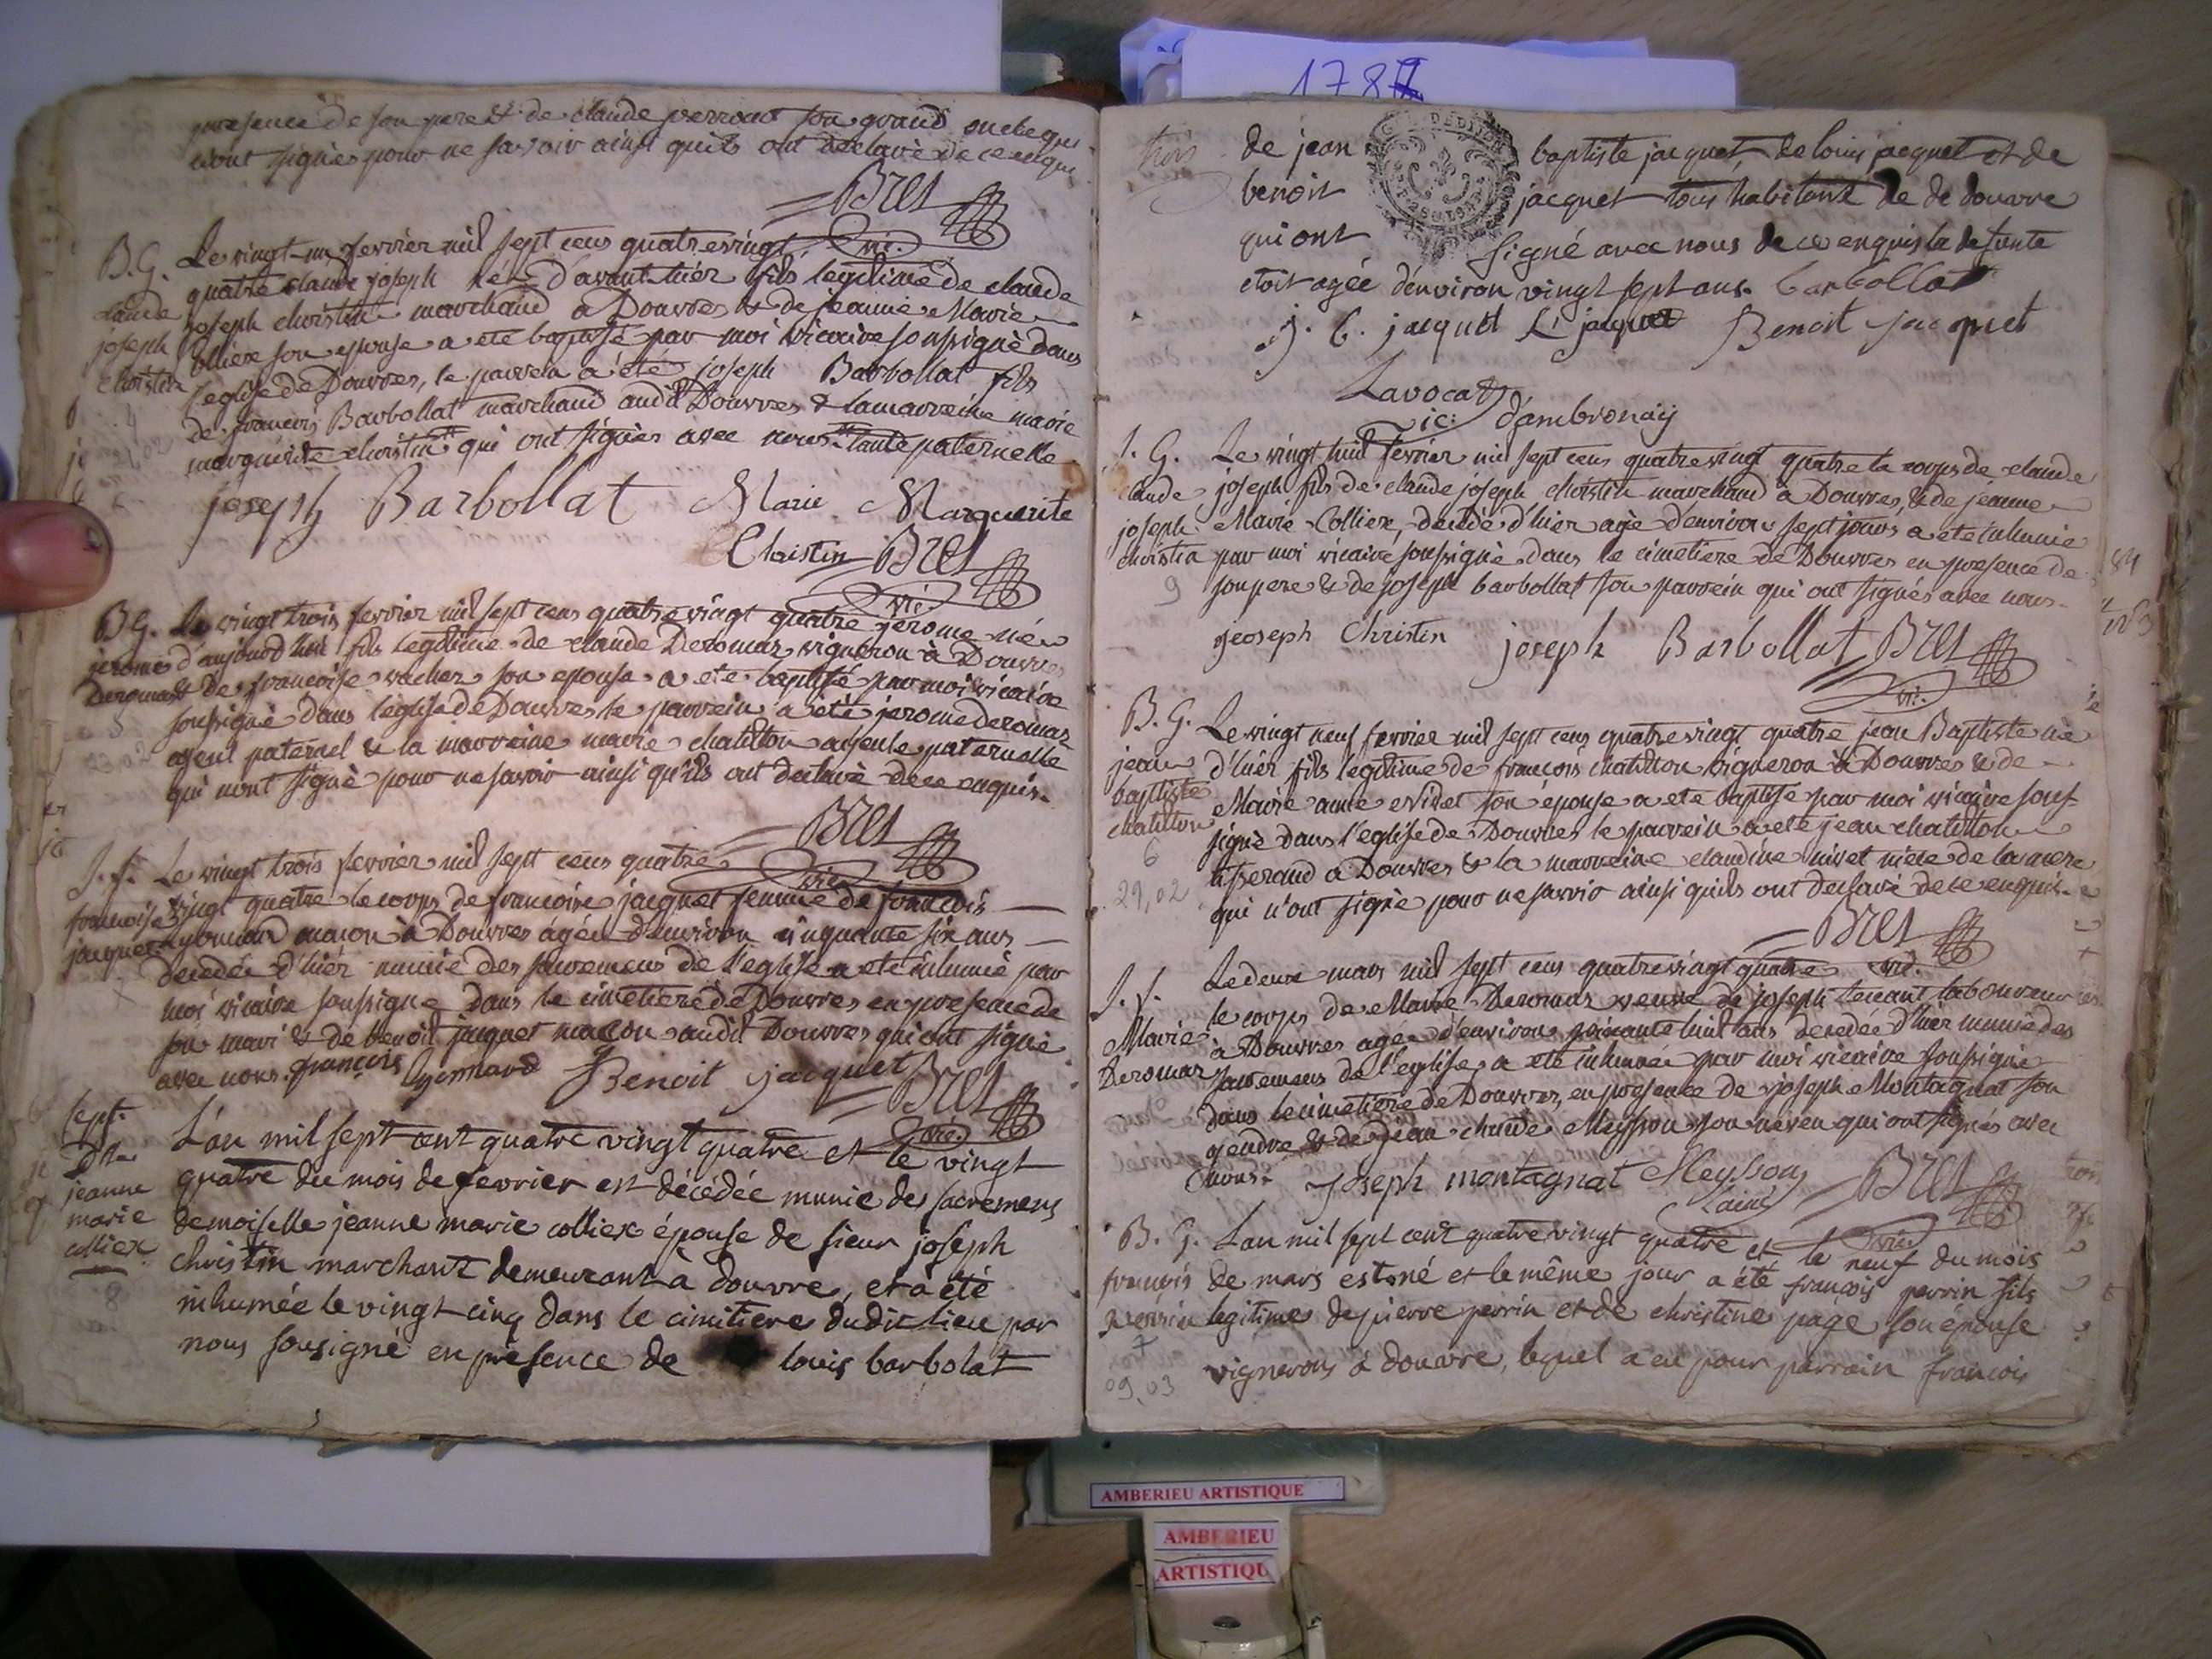 presence de son pere & de claude perrous son grand oncle qui
n'ont signés pour ne savoir ainsi quils ont declaré de ce enquis
Bret
vic.
B.G.
claude
joseph
christin
Le vingt-un fevrier mil sept cens quatrevingt
quatre claude joseph né d'avant hier fils legitime de claude
joseph christin marchand a Douvres & de jeanne Marie
Colliex son epouse a eté baptisé par moi vicaire soussigné dans
l'eglise de Douvres, le parrein a été joseph Barbollat fils
de françois Barbollat marchand audit Douvres & la marreine marie
marguerite christin qui ont signés avec nous. tante paternelle
joseph Barbollat Marie Marguerite
Christin Bret
vic.
BG.
jerome
Deromas
Le vingt trois fevrier mil sept cens quatre vingt quatre jerome né
d'aujourd'hui fils legitime de claude Deromas vigneron à Douvres
& de francoise vacher son epouse a eté baptisé par moi vicaire
soussigné dans l'eglise de Douvres le parrein a été jerome deromas
ayeul paternel & la marreine marie chatillon ayeule paternelle
qui n'ont signé pour ne savoir ainsi qu'ils ont declaré de ce enquis.
Bret
vic.
J.f.
francoise
jacquet
Le vingt trois fevrier mil sept cens quatre
vingt quatre le corps de francoise jacquet femme de francois
maçon à Douvres agée d'environ cinquante six ans
decedée d'hier munie des sacremens de l'eglise a eté inhumé par
moi vicaire soussigné dans le cimetiere de Douvres en presence de
son mari & de benoit jacquet maçon audit Douvres qui ont signé
avec nous. françois Benoit jacquet
Bret
vic.
sept.
Dlle
jeanne
marie
colliex
8
L'an mil sept cent quatre vingt quatre et le vingt
quatre du mois de fevrier est décédée munie des sacremens
demoiselle jeanne marie colliex épouse de sieur joseph
christin marchant demeurant à douvre, et a été
inhumée le vingt-cinq dans le cimitiere dudit lieu par
nous sousigné en présence de louis barbolat
1784
trois
de jean baptiste jacquet, de louis jacquet et de
benoit jacquet tous habitans de de douvre
qui ont signé avec nous de ce enquis la defunte
etoit agée d'environ vingt sept ans. barbollat
j. b. jacquet L. jacquet Benoit jacquet
Lavocat
vic: d'ambronaÿ
J. G.
claude
joseph
christin
9
Le vingt huit fevrier mil sept cens quatre vingt quatre le corps de claude
joseph fils de claude joseph christin marchand à Douvres, & de jeanne
Marie Colliex, decedé d'hier agé d'environ sept jours a eté inhumé
par moi vicaire soussigné dans le cimetiere de Douvres en presence de
son pere & de joseph barbollat son parrein qui ont signés avec nous.
geoseph Christin joseph Barbollat Bret
vic.
B. G.
jean
baptiste
chatillon
6
29,02
Le vingt neuf fevrier mil sept cens quatre vingt quatre jean Baptiste né
d'hier fils legitime de françois chatillon vigneron à Douvres & de
Marie anne Nivet son épouse a eté baptisé par moi vicaire sous-
signé dans l'eglise de Douvres le parrein a eté jean chatillon
tisserand a Douvres & la marreine claudine nivet niece de la mere
qui n'ont signé pour ne savoir ainsi quils ont declaré de ce enquis.
Bret
vic.
J. f.
Marie
Deromas
Le deux mars mil sept cens quatrevingt quatre
le corps de Marie Deromas veuve de joseph tenant laboureur
à Douvres agée d'environ soixante huit ans decedée d'hier munie des
sacremens de l'eglise, a eté inhumée par moi vicaire soussigné
dans le cimetiere de Douvres, en presence de joseph Montagnat son
gendre & de jean claude Meysson son neveu qui ont signés avec
nous. Joseph montagnat Meysson
l'ainé
Bret
vic.
B. G.
francois
perrin
7
09,03
L'an mil sept cent quatre vingt quatre et le neuf du mois
de mars est né et le même jour a été francois perrin fils
legitime de pierre perrin et de christine page son épouse
vignerons à douvre, lequel a eu pour parrain francois
AMBERIEU ARTISTIQUE
AMBERIEU
ARTISTIQU